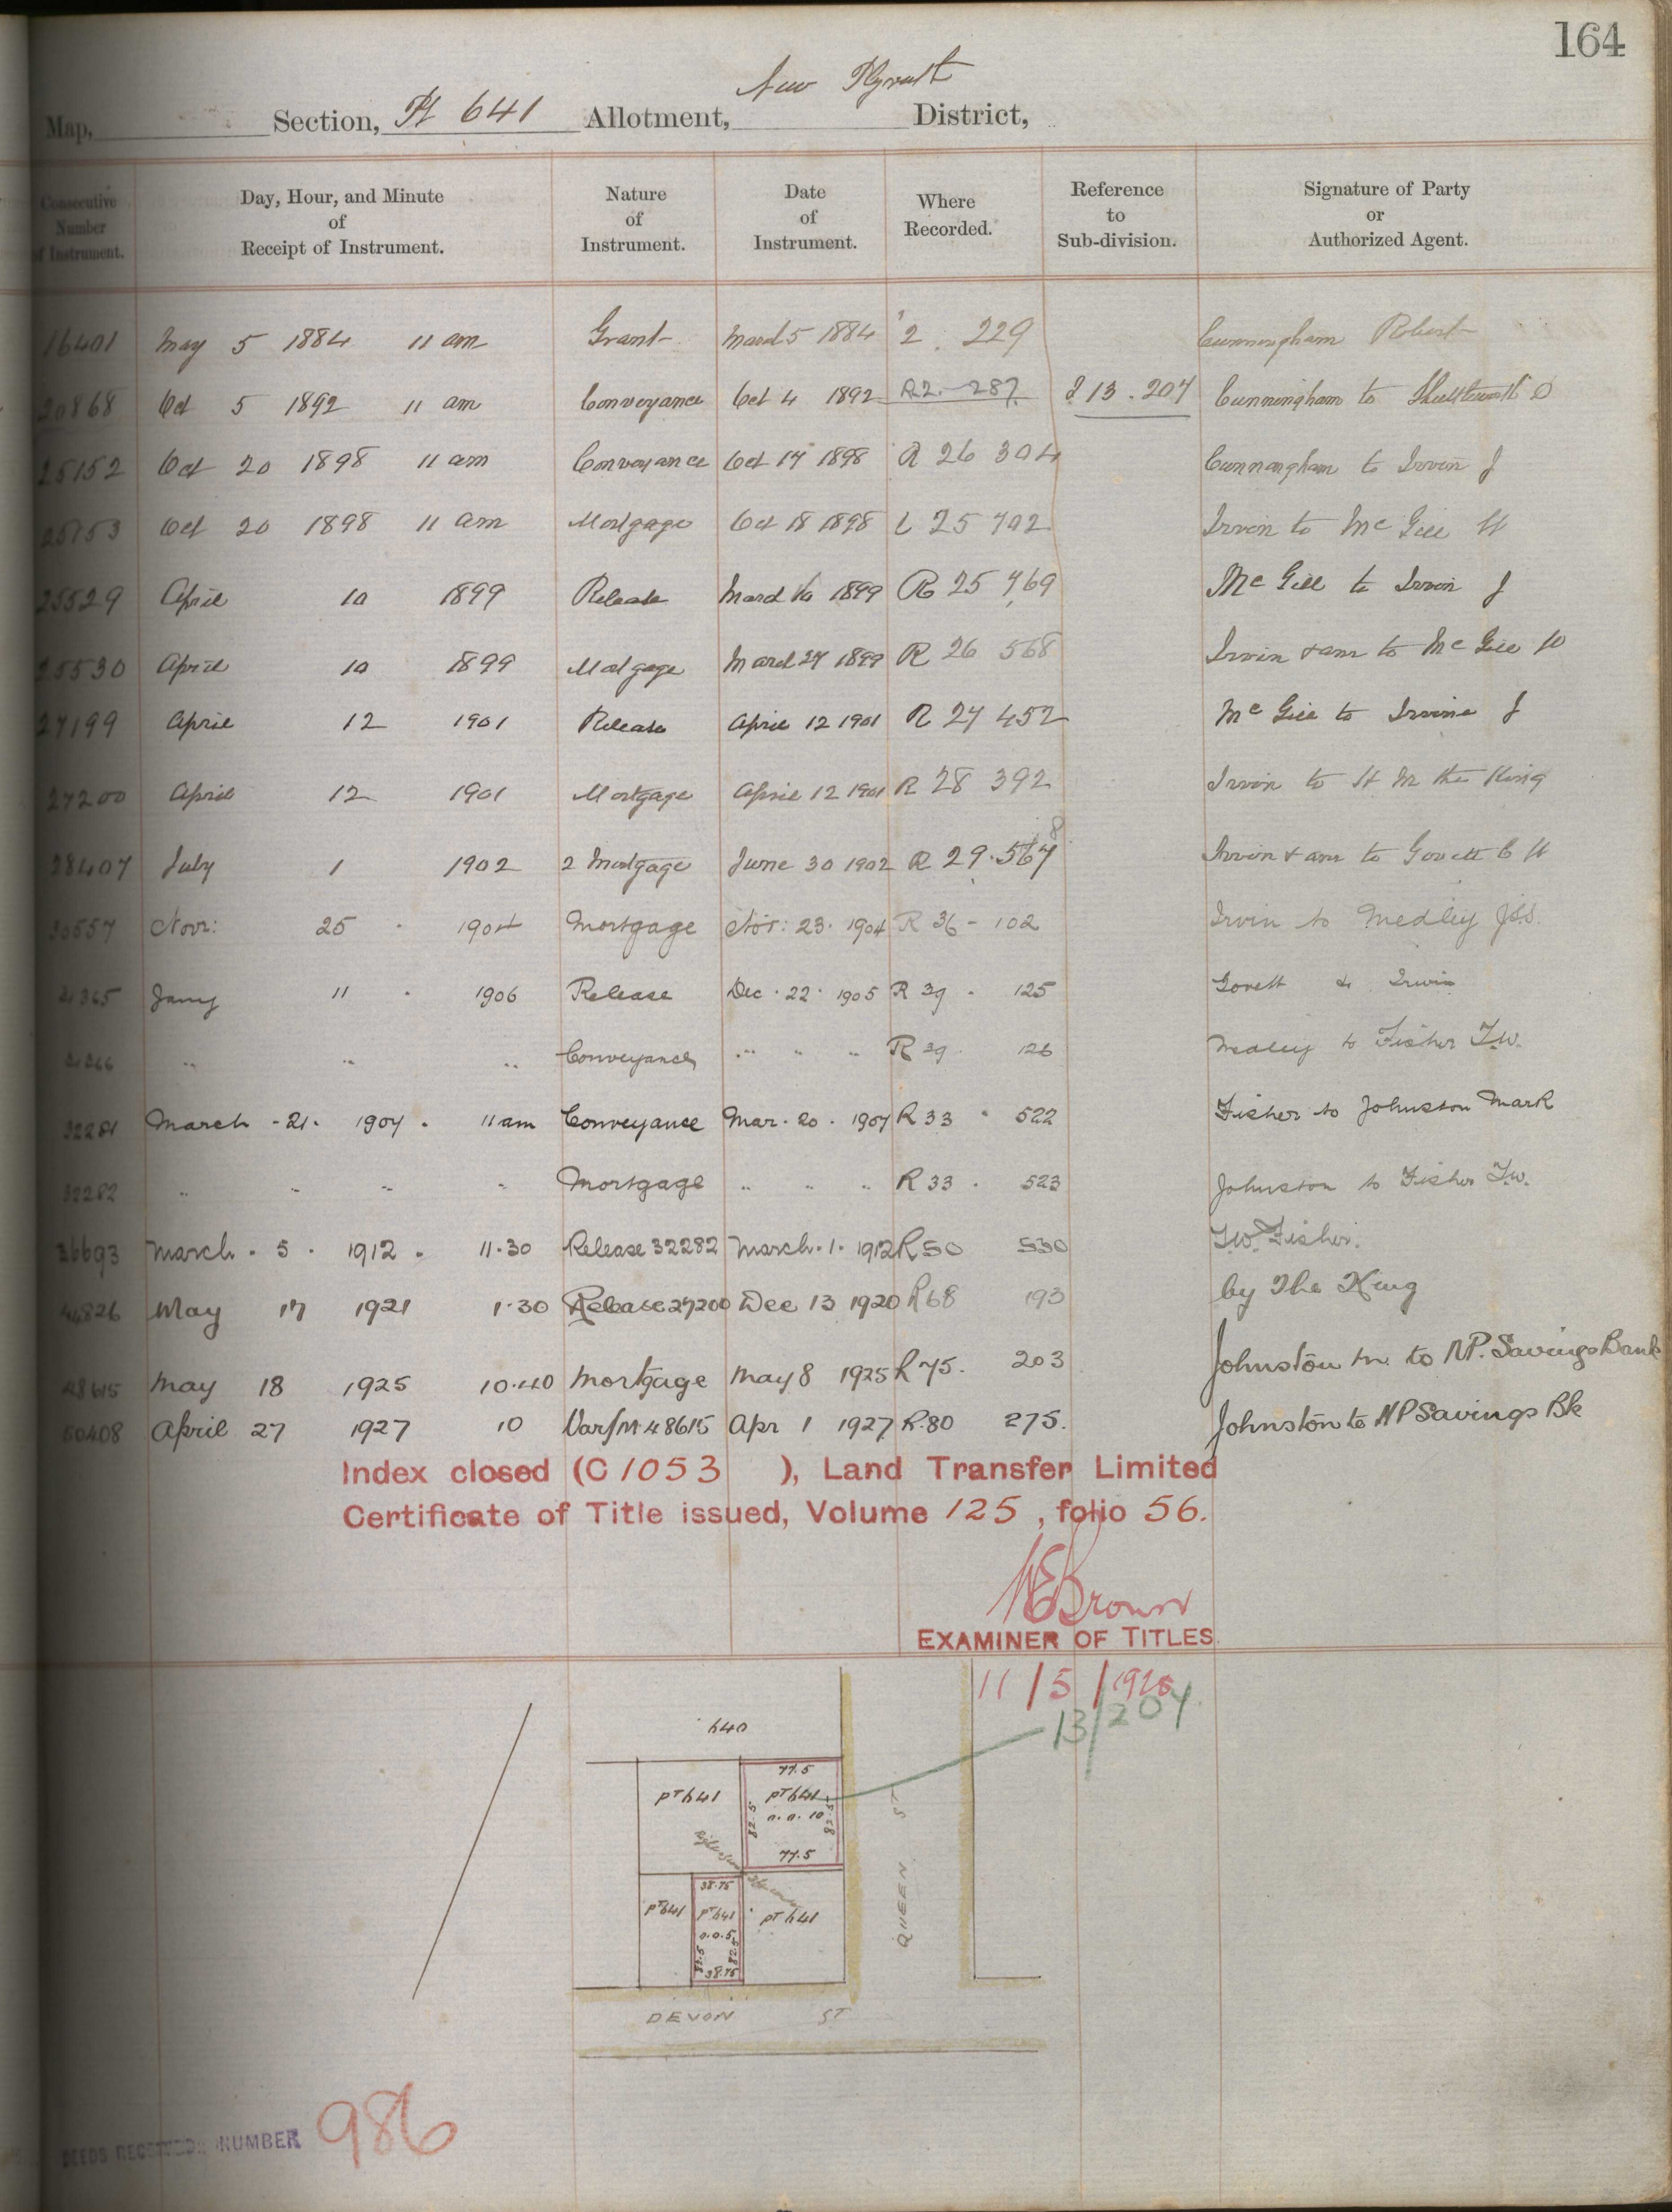 164
New Plymouth
Map, Section, Pt 641 Allotment, District,
Consecutive Number of Instrument. Day, Hour, and Minute of Receipt of Instrument. Nature of Instrument. Date of Instrument. Where Recorded. Reference to Sub-division. Signature of Party or Authorized Agent.
16401 May 5 1884 11 am Grant March 5 1884 2. 229 Cunningham Robert
20868 Oct 5 1892 11 am Conveyance Oct 4 1892 R2. 287 I 13. 207 Cunningham to
25152 Oct 20 1898 11 am Conveyance Oct 17 1898 R 26 304 Cunningham to Irvin J
25153 Oct 20 1898 11 am Mortgage Oct 18 1898 25 702 Irvin to McGill H
25529 April 10 1899 Release March 1899 R 25 769 McGill to Irvin J
25530 April 10 1899 Mortgage March 27 1899 R 26 568 Irvin & anr to McGill
27199 April 12 1901 Release April 12 1901 R 27 452 McGill to Irvine J
27200 April 12 1901 Mortgage April 12 1901 R 28 392 Irvin to H M the King
28407 July 1 1902 2 Mortgage June 30 1902 R 29. 567 8 Irvin & anr to Govett C H
30557 Novr: 25 1904 Mortgage Nov: 23. 1904 R 36 - 102 Irvin to Medley
31365 Jany 11 1906 Release Dec. 22. 1905 R 39. 125 Govett to Irwin
31366 " " " Conveyance " " " R 39. 126 Medley to Fisher T.W.
32281 March - 21. 1907. 11 am Conveyance Mar. 20. 1907 R 33 " 522 Fisher to Johnston Mark
32282 " " " " Mortgage " " " R 33. 523 Johnston to Fisher T.W.
36693 March. 5. 1912. 11.30 Release 32282 March. 1. 1912 R 50 530 T.W. Fisher.
44826 May 17 1921 1.30 Release 27200 Dec 13 1920 R 68 193 by The King
48615 May 18 1925 10.40 Mortgage May 8 1925 R 75. 203 Johnston M. to N.P. Savings Bank
50408 April 27 1927 10 Var/M. 48615 Apr 1 1927 R. 80 275. Johnston to N P Savings Bk
Index closed (C 1053 ), Land Transfer Limited
Certificate of Title issued, Volume 125, folio 56.
Brown
EXAMINER OF TITLES.
11/5/1928
13/207
640
77.5
pt 641 pt 641
0. 0. 10
82.5 82.5
77.5
38.75
pt 641 pt 641 pt 641
0.0.5
82.5 82.5
38.75
QUEEN ST
DEVON ST
DEEDS RECEIVED NUMBER 986